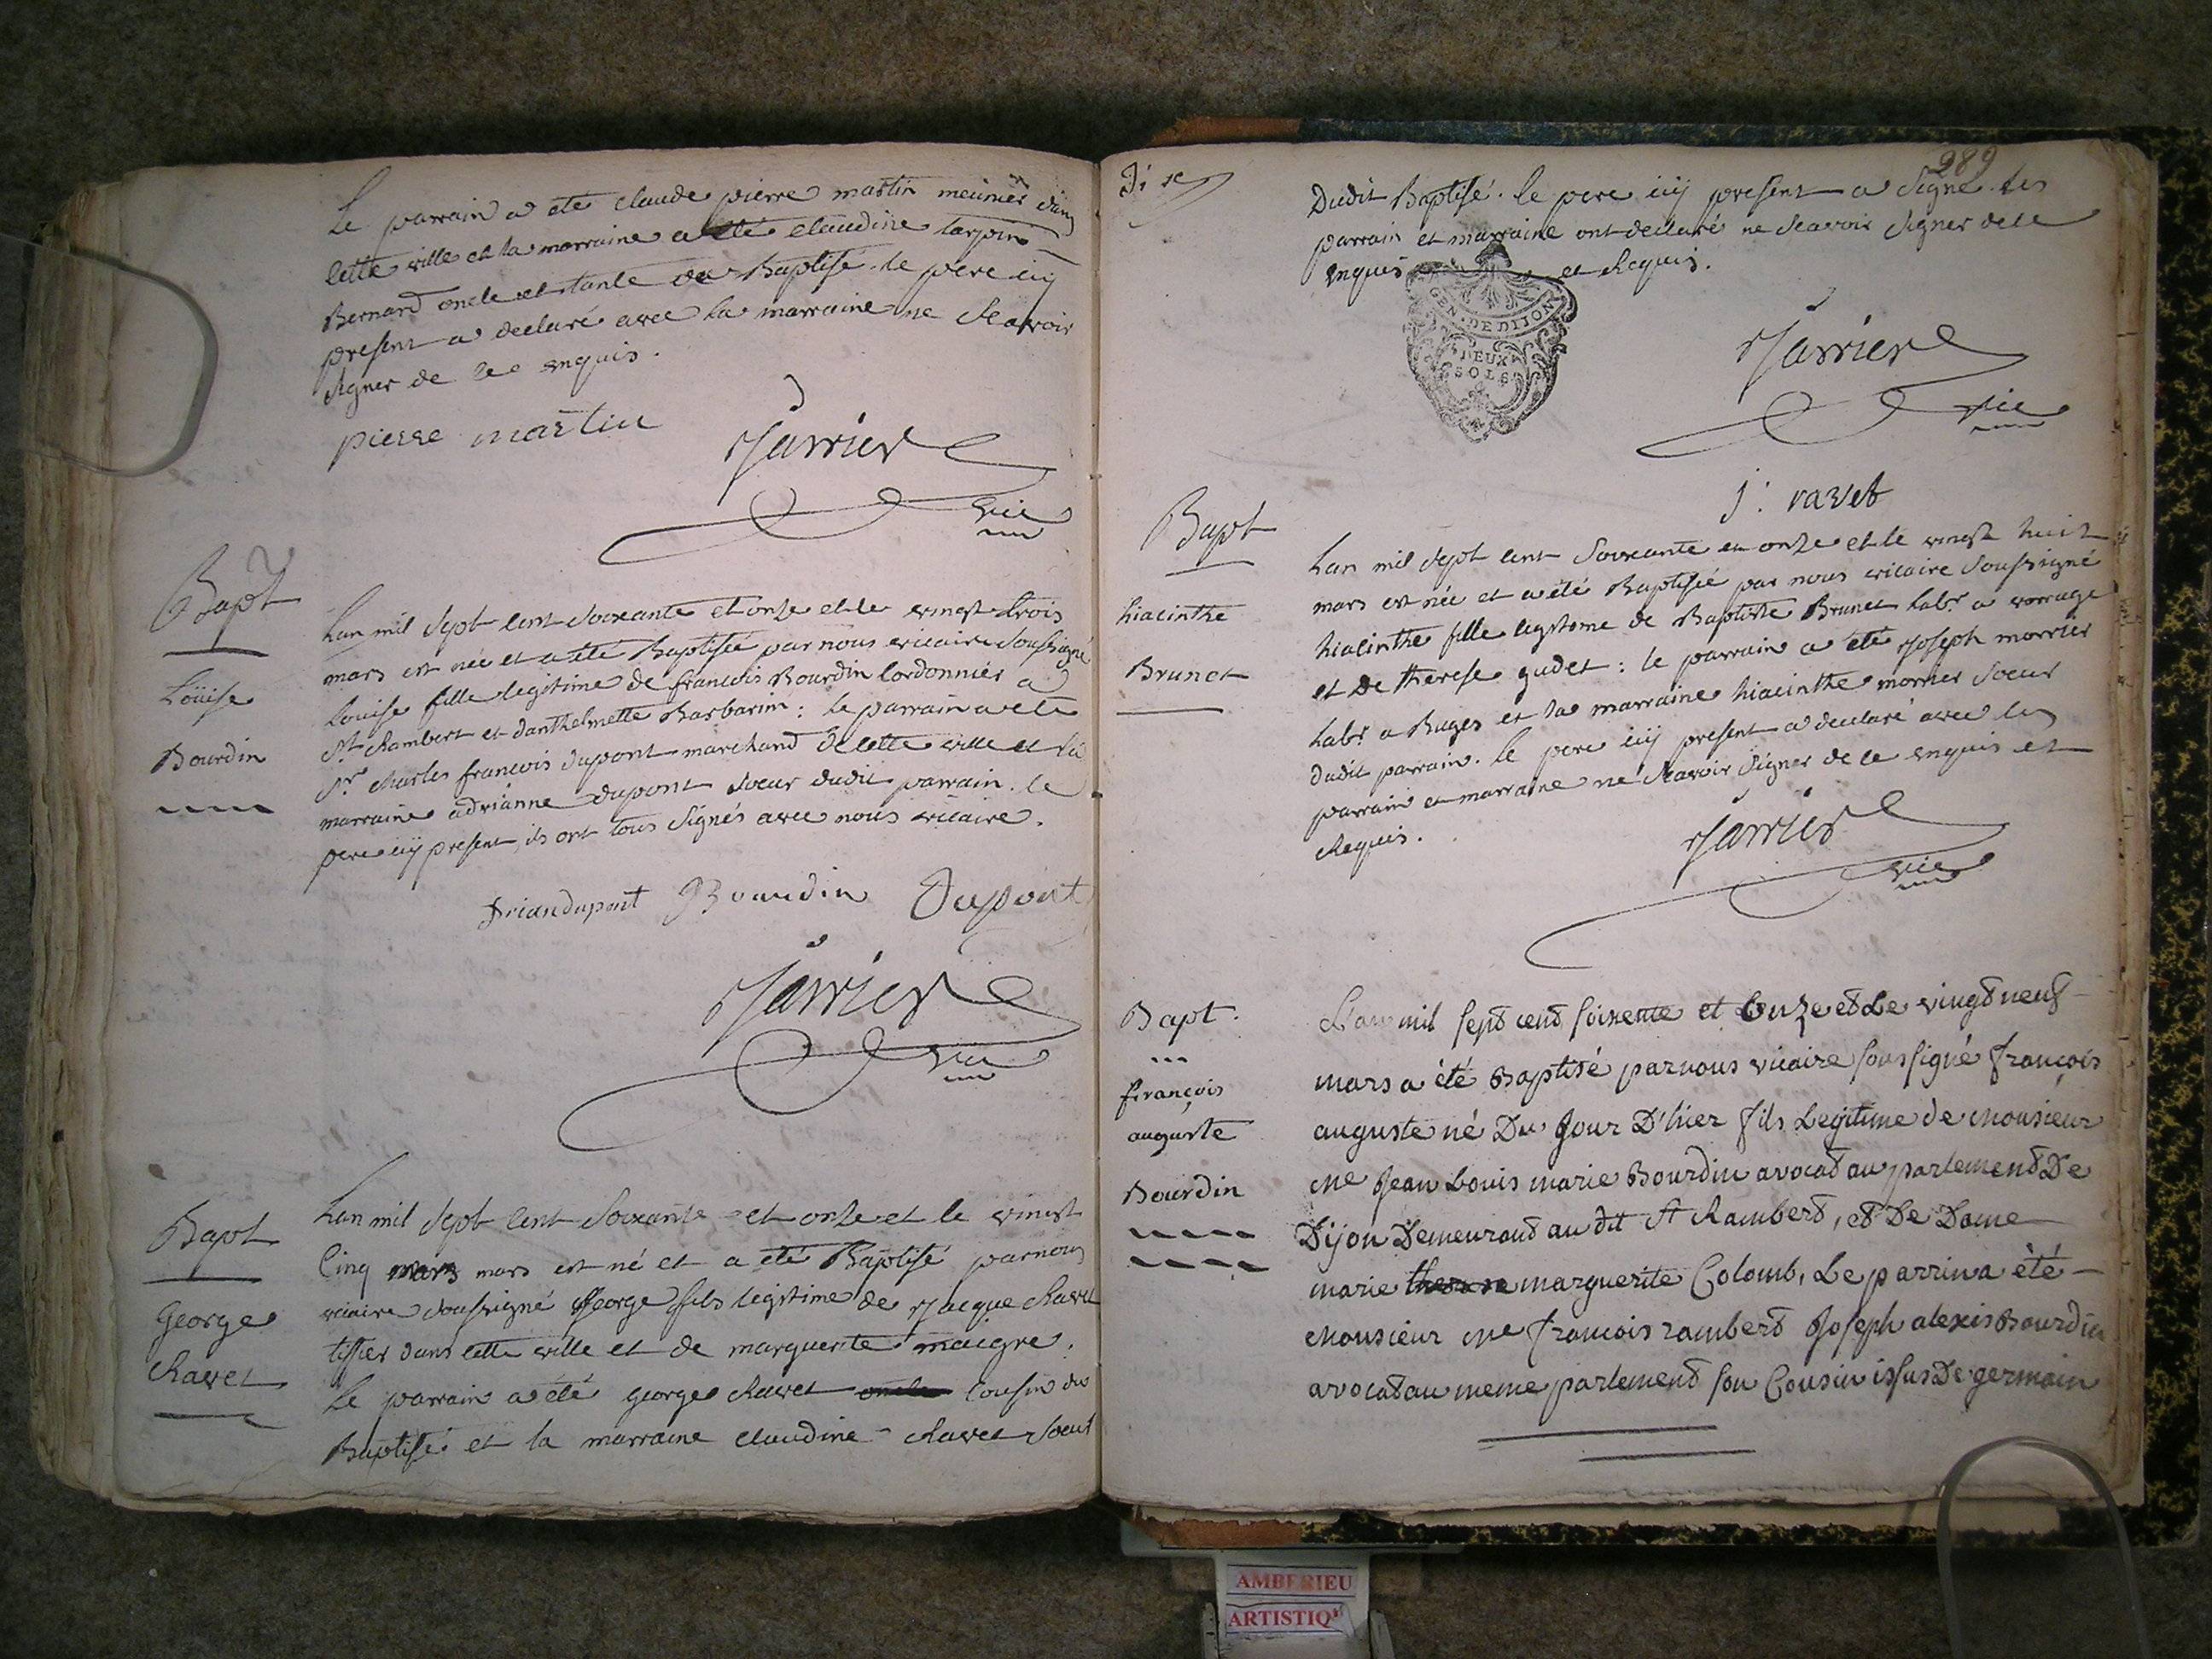 Le parrain a eté claude pierre martin meunier dans
cette ville et la marraine a eté claudine
Bernard oncle et tante du Baptisé. le pere icy
present a declaré avec la marraine ne scavoir
signer de ce enquis.
pierre martin
Jarrier
vic
Bapt
Loüise
Bourdin
Lan mil sept cent soixante et onze et le vingt trois
mars est née et a eté Baptisée par nous vicaire soussigné
Louise fille legitime de francois Bourdin cordonnier a
St Rambert et danthelmette Barbarin : le parrain a eté
Sr charles francois dupont marchand de cette ville et la
marraine adrianne dupont soeur dudit parrain. le
pere icy present, ils ont tous signés avec nous vicaire.
driandupont Bourdin Dupont
Jarrier
vic
Bapt
George
Ravet
Lan mil sept cent soixante et onze et le vingt
cinq mars mars est né et a eté Baptisé par nous
vicaire soussigné George fils legitime de Jacque Ravet
tissier dans cette ville et de marguerite maigre.
Le parrain a été george Ravet oncle cousin du
Baptisé et la marraine claudine Ravet soeur
289
Dudit Baptisé. le pere icy present a signé. les
parrain et marraine ont declaré ne scavoir signer de ce
enquis et Requis.
GEN. DE DIJON
DEUX
SOLS
Jarrier
vic
j: ravet
Bapt
hiacinthe
Brunet
Lan mil sept cent soixante et onze et le vingt huit
mars est née et a été Baptisée par nous vicaire soussigné
hiacinthe fille legitome de Baptiste Brunet labr a vorrage
et De therese gudet : le parrain a eté Joseph morrier
labr a Buges et la marraine hiacinthe morrier soeur
dudit parrain. le pere icy present a declaré avec les
parrain et marraine ne scavoir signer de ce enquis et
Requis.
Jarrier
vic
Bapt.
françois
auguste
Bourdin
L'an mil sept cent soixente et onze et Le vingt neuf
mars a été Baptisé par nous vicaire soussigné françois
auguste né Du Jour D'hier fils Legitime de Monsieur
Me Jean Louis marie Bourdin avocat au parlement De
Dijon Demeurant au dit St Rambert, et De Dame
marie therese marguerite Colomb, Le parrin a été
Monsieur Me francois rambert Joseph alexis Bourdin
avocat au meme parlement son Cousin issus De germain
AMBERIEU
ARTISTIQ